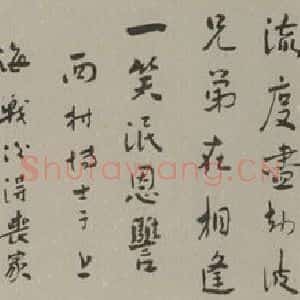 流度盡劫波
兄弟在相逢
一笑泯恩讐
西村博士于上
海戰後得喪家
Shufawang.CN